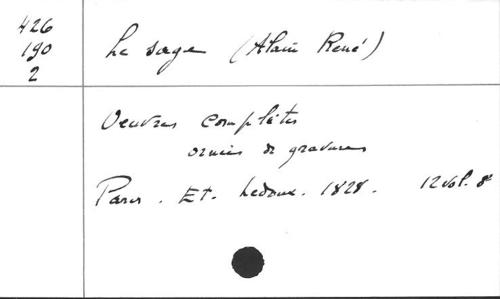 426
190
2
Le sage (Alain René)
Oeuvres complètes
ornées de gravures
Paris. Et. Ledoux. 1828. 12 vol. 8º